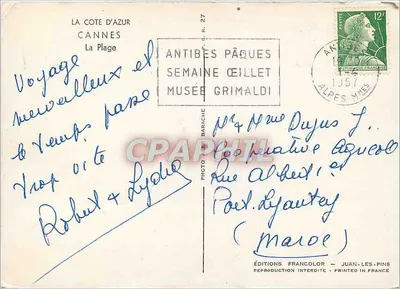 LA COTE D'AZUR
CANNES
La Plage
Voyage
merveilleux et
le temps passe
trop vite
Robert & Lydia
ANTIBES PÂQUES
SEMAINE ŒILLET
MUSÉE GRIMALDI
12F
1957
ALPES Mmes
PHOTO BARACHE
CPAPHIL
Mr & Mme Dujus J..
Coopérative Agricole
Rue Albert 1er
Port. Lyautey
(Maroc)
EDITIONS FRANCOLOR — JUAN-LES-PINS
REPRODUCTION INTERDITE - PRINTED IN FRANCE